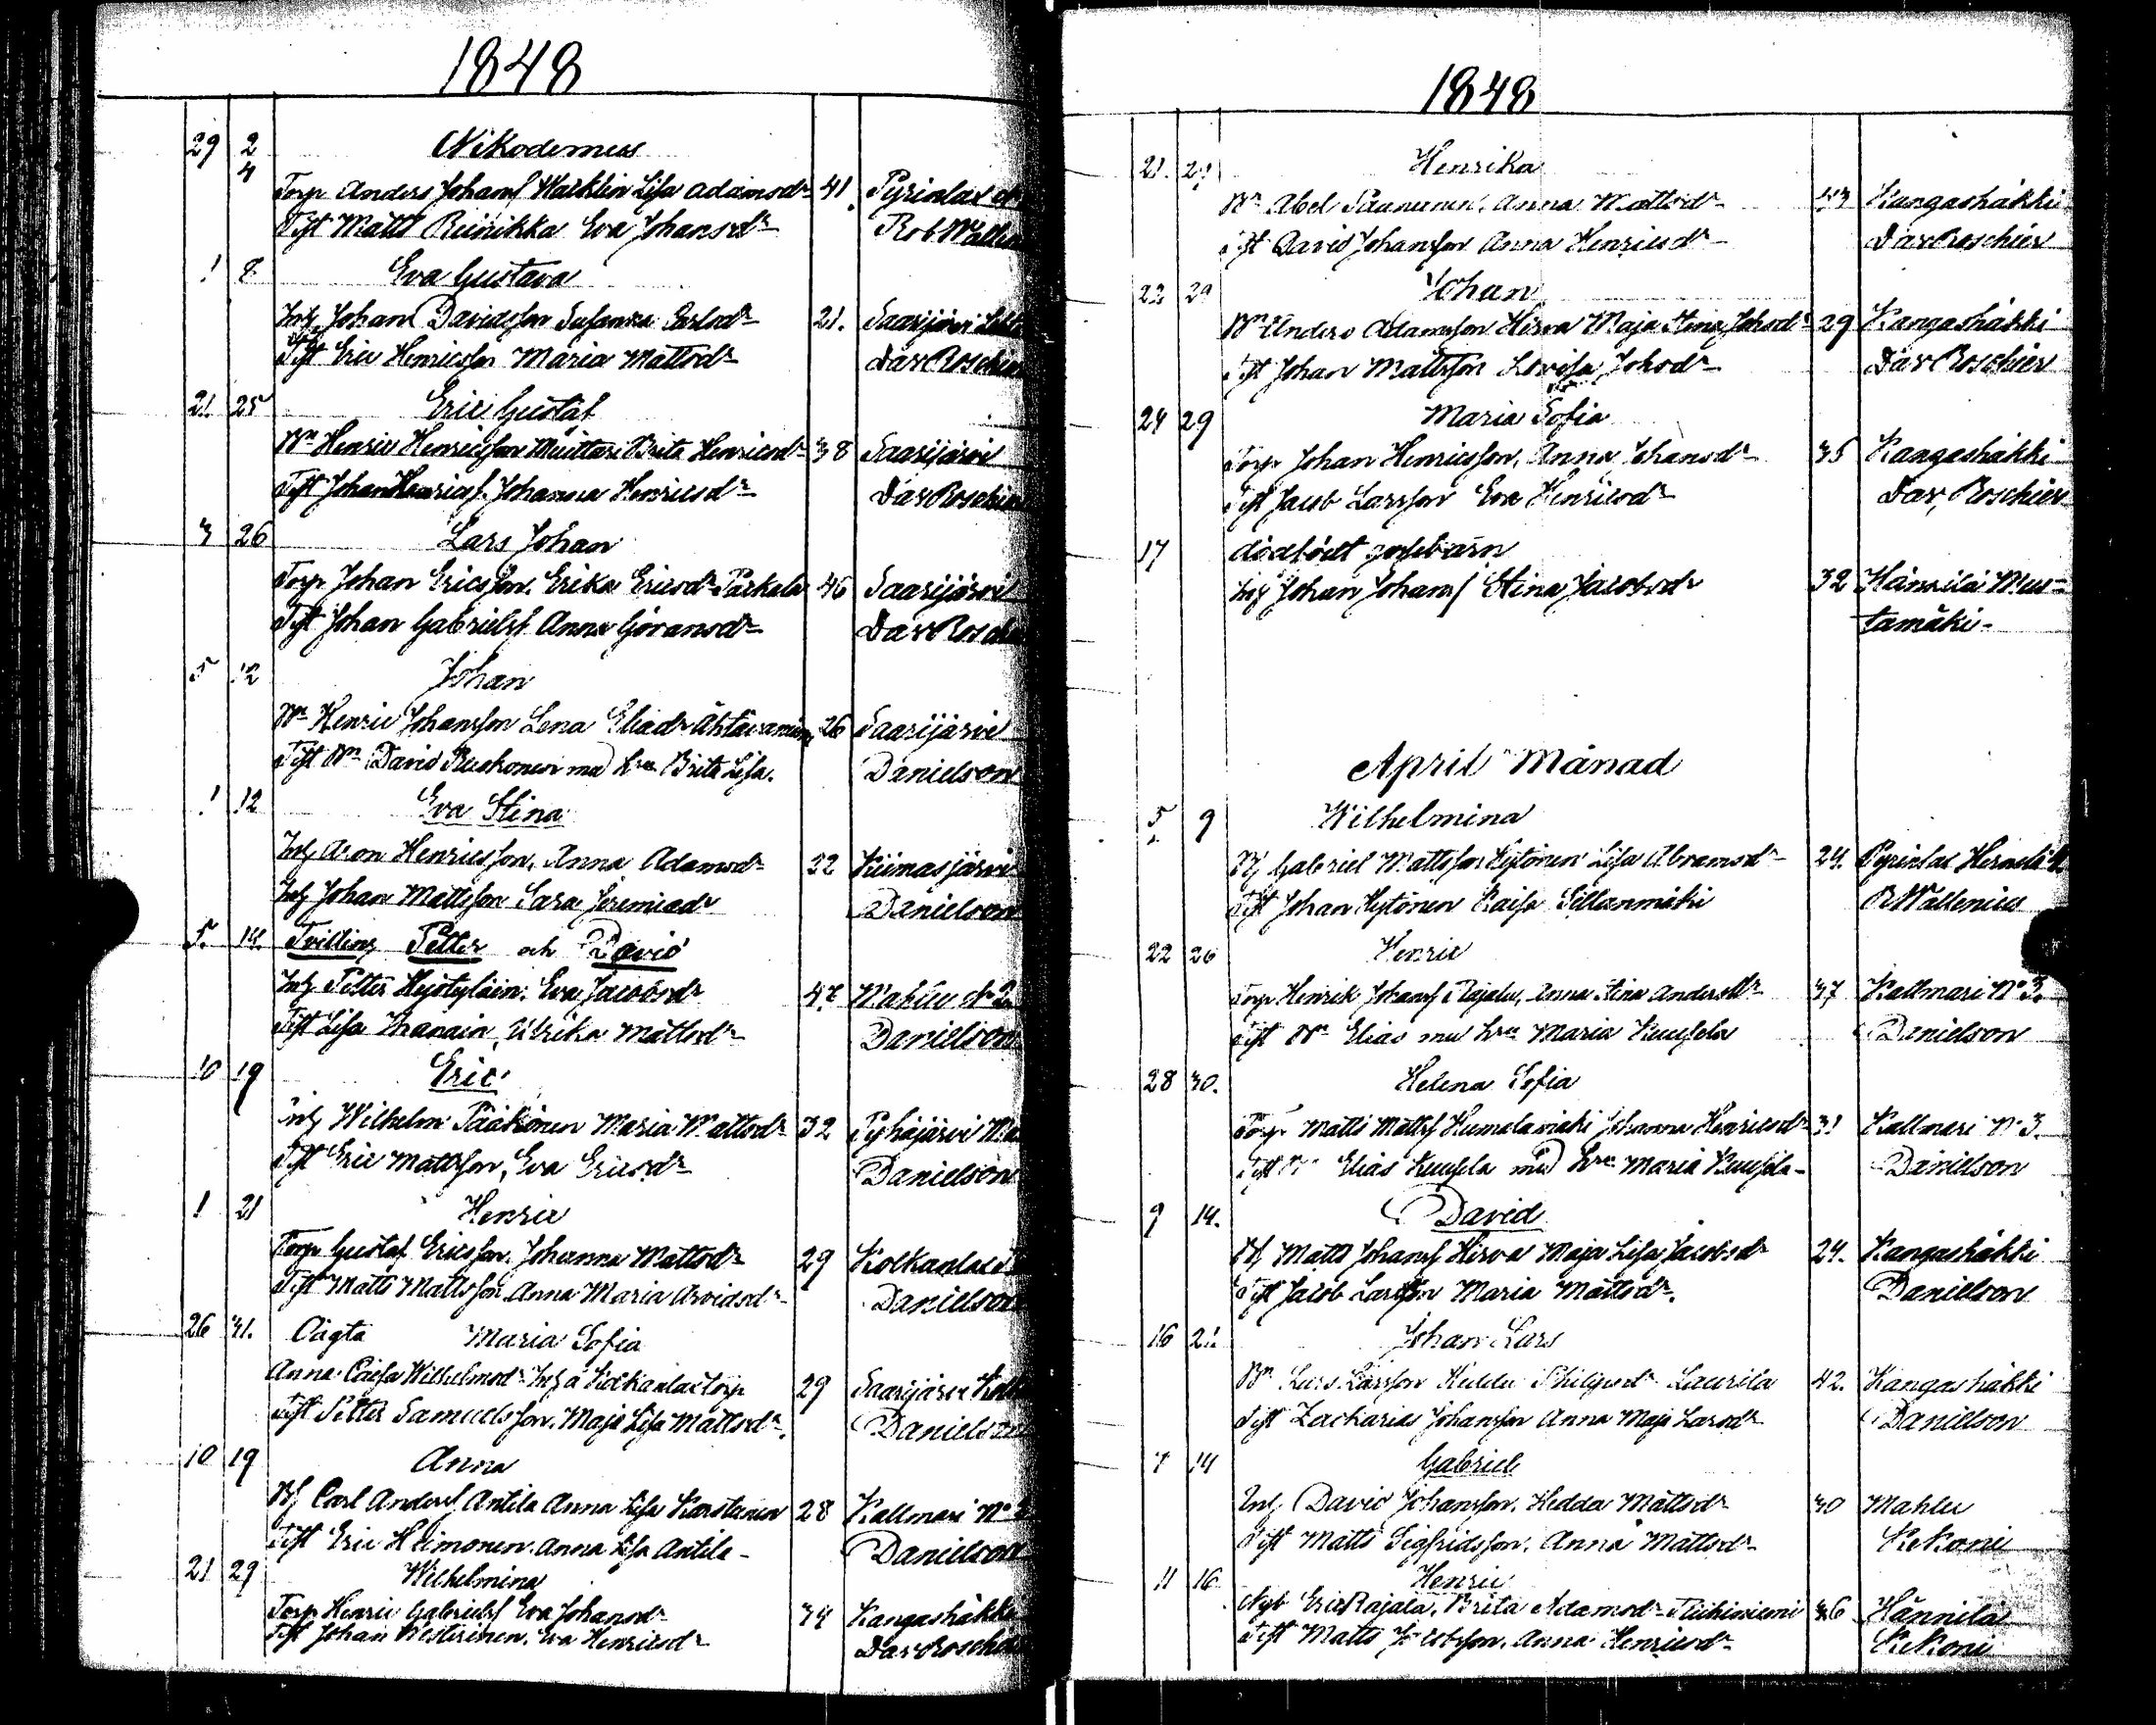 1848
29 2 Nikodemus
4
Torp Anders Johansf Marklin Lisa Adamsdr 41 Pyrinlax
Tift Matts Reinikka Eva Johansdr Rob Wallen
1 8 Eva Gustava
Inh Johan Davidsson Susanna Carlsdr 21. Saarijärvi
Tift Eric Henricsson Maria Mattsdr Dav Roschier
21 25 Eric Gustaf
Bn Henric Henricsson Muittari Brita Henricsdr 38 Saarijärvi
Tift Johan Henricsf. Johanna Henricsdr Dav Roschier
3 26 Lars Johan
Torp Johan Ericsson, Erika Ericsdr Parkala 46 Saarijärvi
Tift Johan Gabrielsf Anna Göransdr Dav Rosch
5 12 Johan
Bn Henric Johansson Lena Eliedr 26 Saarijärvi
Tift Bn David Ruskonen med hru Brita Lisa. Danielson
1 12 Eva Stina
Inh Aron Henricsson, Anna Adamsdr 22 Kiimasjärvi
Inh Johan Mattsson Sara Jeremiedr Danielson
5. 14 Tvilling Petter och David
Inh Petter Hejstyläin. Eva Jacobsdr 42 Mahlu No 2
Tift Lisa Ulrika Mattsdr Danielson
10 19 Eric
Inh Wilhelm Pääkönen Maria Mattsdr 32 Pyhäjärvi
Tift Eric Mattsson, Eva Ericsdr Danielson
1 21 Henric
Torp Gustaf Ericsson, Johanna Mattsdr 29 Kolkanlax
Tift Matts Mattsson Anna Maria Arvidsdr Danielson
26 31. Oägta Maria Sofia
Anna Caisa Wilhelmsdr Inh å Kolkanlax Torp 29 Saarijärvi Kolk
Tift Petter Samuelsson. Maja Lisa Mattsdr. Danielson
10 19 Anna
Bf Carl Andersf Antila Anna Lisa Karstunen 28 Kallmari No
Tift Eric Heimonen. Anna Lisa Antila Danielson
21 29 Wilhelmina
Torp Henric Gabrielsf Eva Johansdr 34 Kangashäkki
Tift Johan Westerinen, Eva Henricsdr Dav Roschier
1848
21. 29 Henrika
Bn Abel Paanunen, Anna Mattsdr 43 Kangashäkki
Tift David Johansson Anna Henricsdr Dav Roschier
22 29 Johan
Bn Anders Adamsson Hirva Maja Stina Johsdr 29 Kangashäkki
Tift Johan Mattsson Lovisa Johsdr Dav Roschier
24 29 Maria Sofia
Torp Johan Henricsson, Anna Johansdr 35 Kangashäkki
Tift Jacob Larsson Eva Henricsdr Dav, Roschier
17 dödfödt gossebarn
Inh Johan Johansf Stina Jacobsdr 32 Hännilä Mus=
tamäki-
April Månad
5 9 Wilhelmina
Bf Gabriel Mattsson Hytönen Lisa Abramsdr 24. Pyrinlax
Tift Johan Hytönen Kaisa Sillanmäki R Wallenius
22 26 Henric
Torp Henrik Johansf Rajala, Anna Stina Andersdr 37 Kallmari No 3.
Tift Bn Elias med hru Maria Kuusela Danielson
28 30. Helena Sofia
Torp Matts Mattsf Humalamäki Johanna Henricsdr 31 Kallmari No 3.
Tift Bn Elias Kuusela med hru Maria Kuusela- Danielson
9 14. David
Bf Matts Johansf Hirva Maja Lisa Jacobsdr 24. Kangashäkki
Tift Jacob Larsson Maria Mattsdr. Danielson
16 21 Johan Lars
Bn Lars Larsson Hedda Philipsdr Laurila 42. Kangashäkki
Tift Zacharias Johansson Anna Maja Larsdr Danielson
7 14 Gabriel
Inh. David Johansson, Hedda Mattsdr 30 Mahlu
Tift Matts Sigfridsson, Anna Mattsdr Kekoni
11 16 Henric
Nyb Eric Rajala, Brita Adamsdr 36 Hännilä
Tift Matts Jacobsson, Anna Henricsdr Kekoni